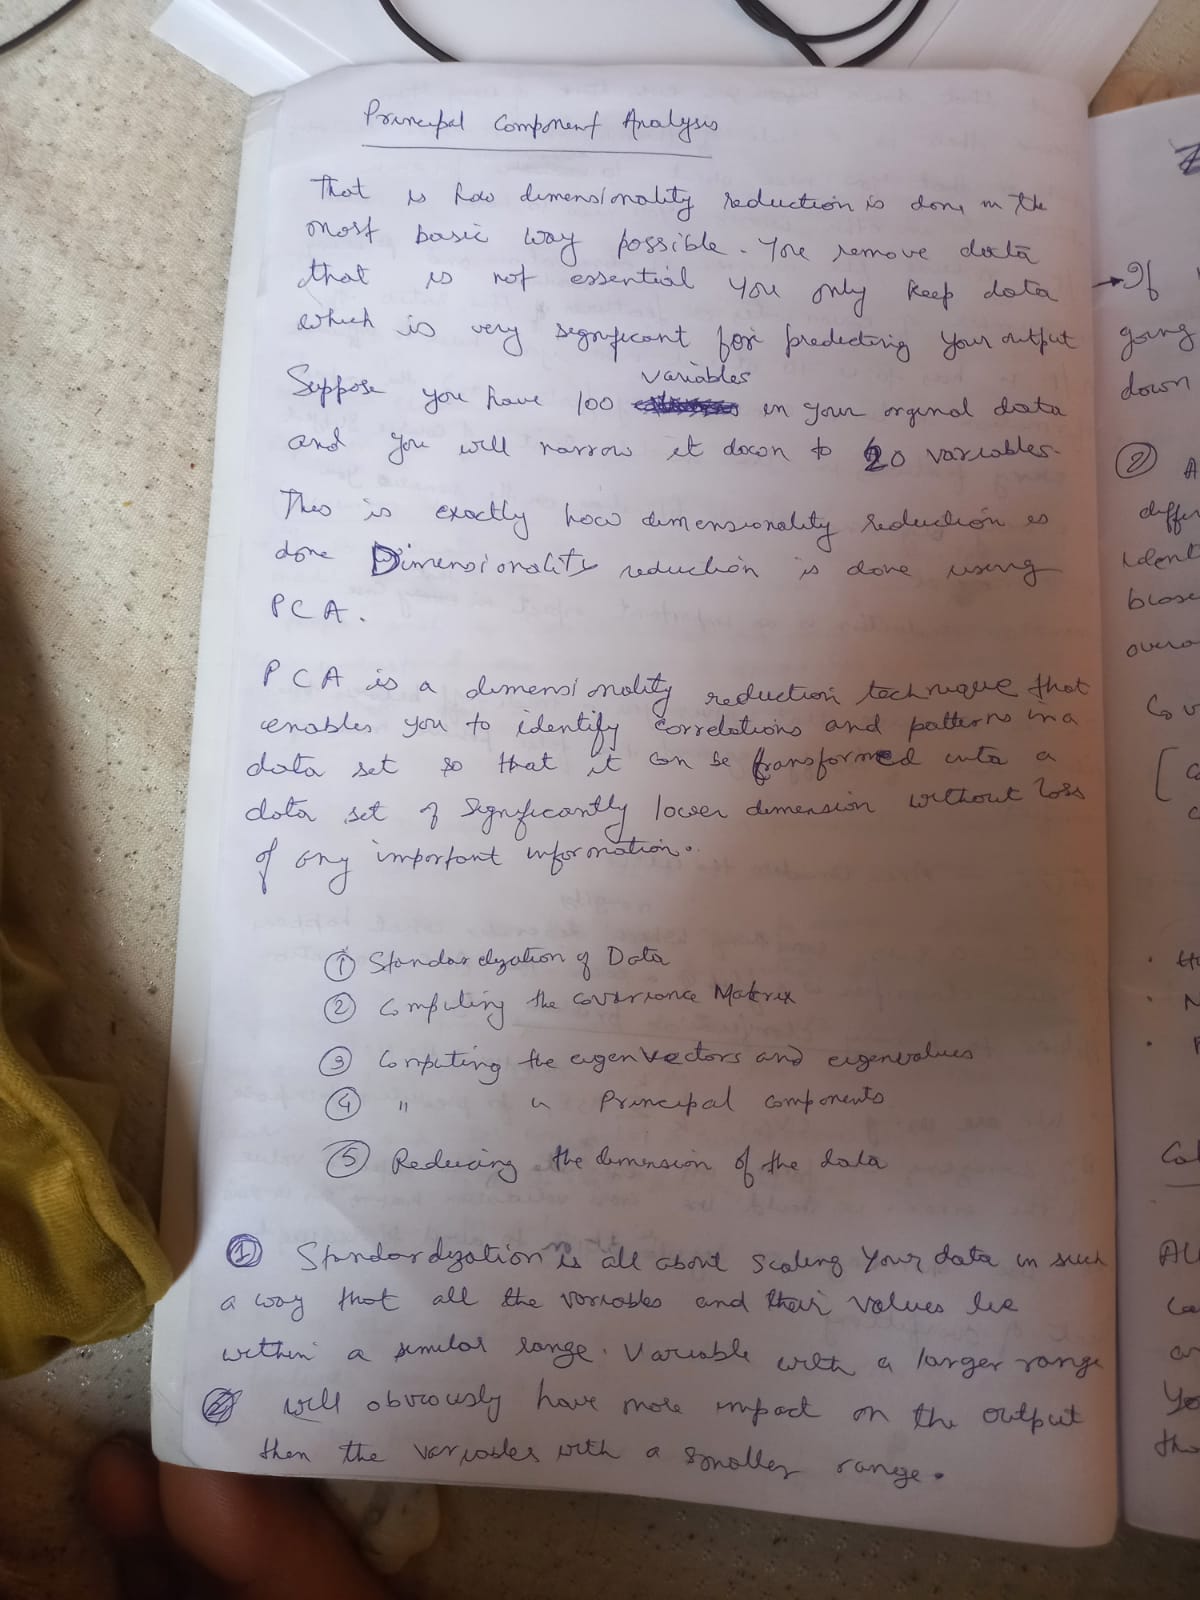 Principal Component Analysis
That is how dimensionality reduction is done in the
most basic way possible. You remove data
that is not essential you only keep data
which is very significant for predecting your output
variables
Suppose you have 100 in your orginal data
and you will narrow it down to 20 variables.
This is exactly how dimensionality reduction is
done Dimensionality reduction is done using
PCA.
PCA is a dimensionality reduction technique that
enables you to identify correlations and patterns in a
data set so that it can be transformed into a
data set of significantly lower dimension without loss
of any important information.
① Standardization of Data
② Computing the covariance Matrix
③ Computing the eigen vectors and eigenvalues
④ " " Principal components
⑤ Reducing the dimension of the data
① Standardization is all about scaling your data in such
a way that all the variables and their values lie
within a similar range. Variable with a larger range
will obviously have more impact on the output
then the variables with a smaller range.
→ If
going
down
② A
over